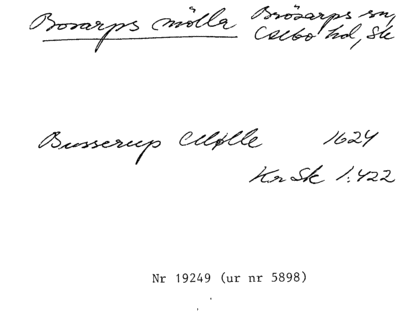 Bosarps mölla Brösarps sn,
Albo hd, Sk
Busserup Mølle 1624
Kr Sk 1:422
Nr 19249 (ur nr 5898)